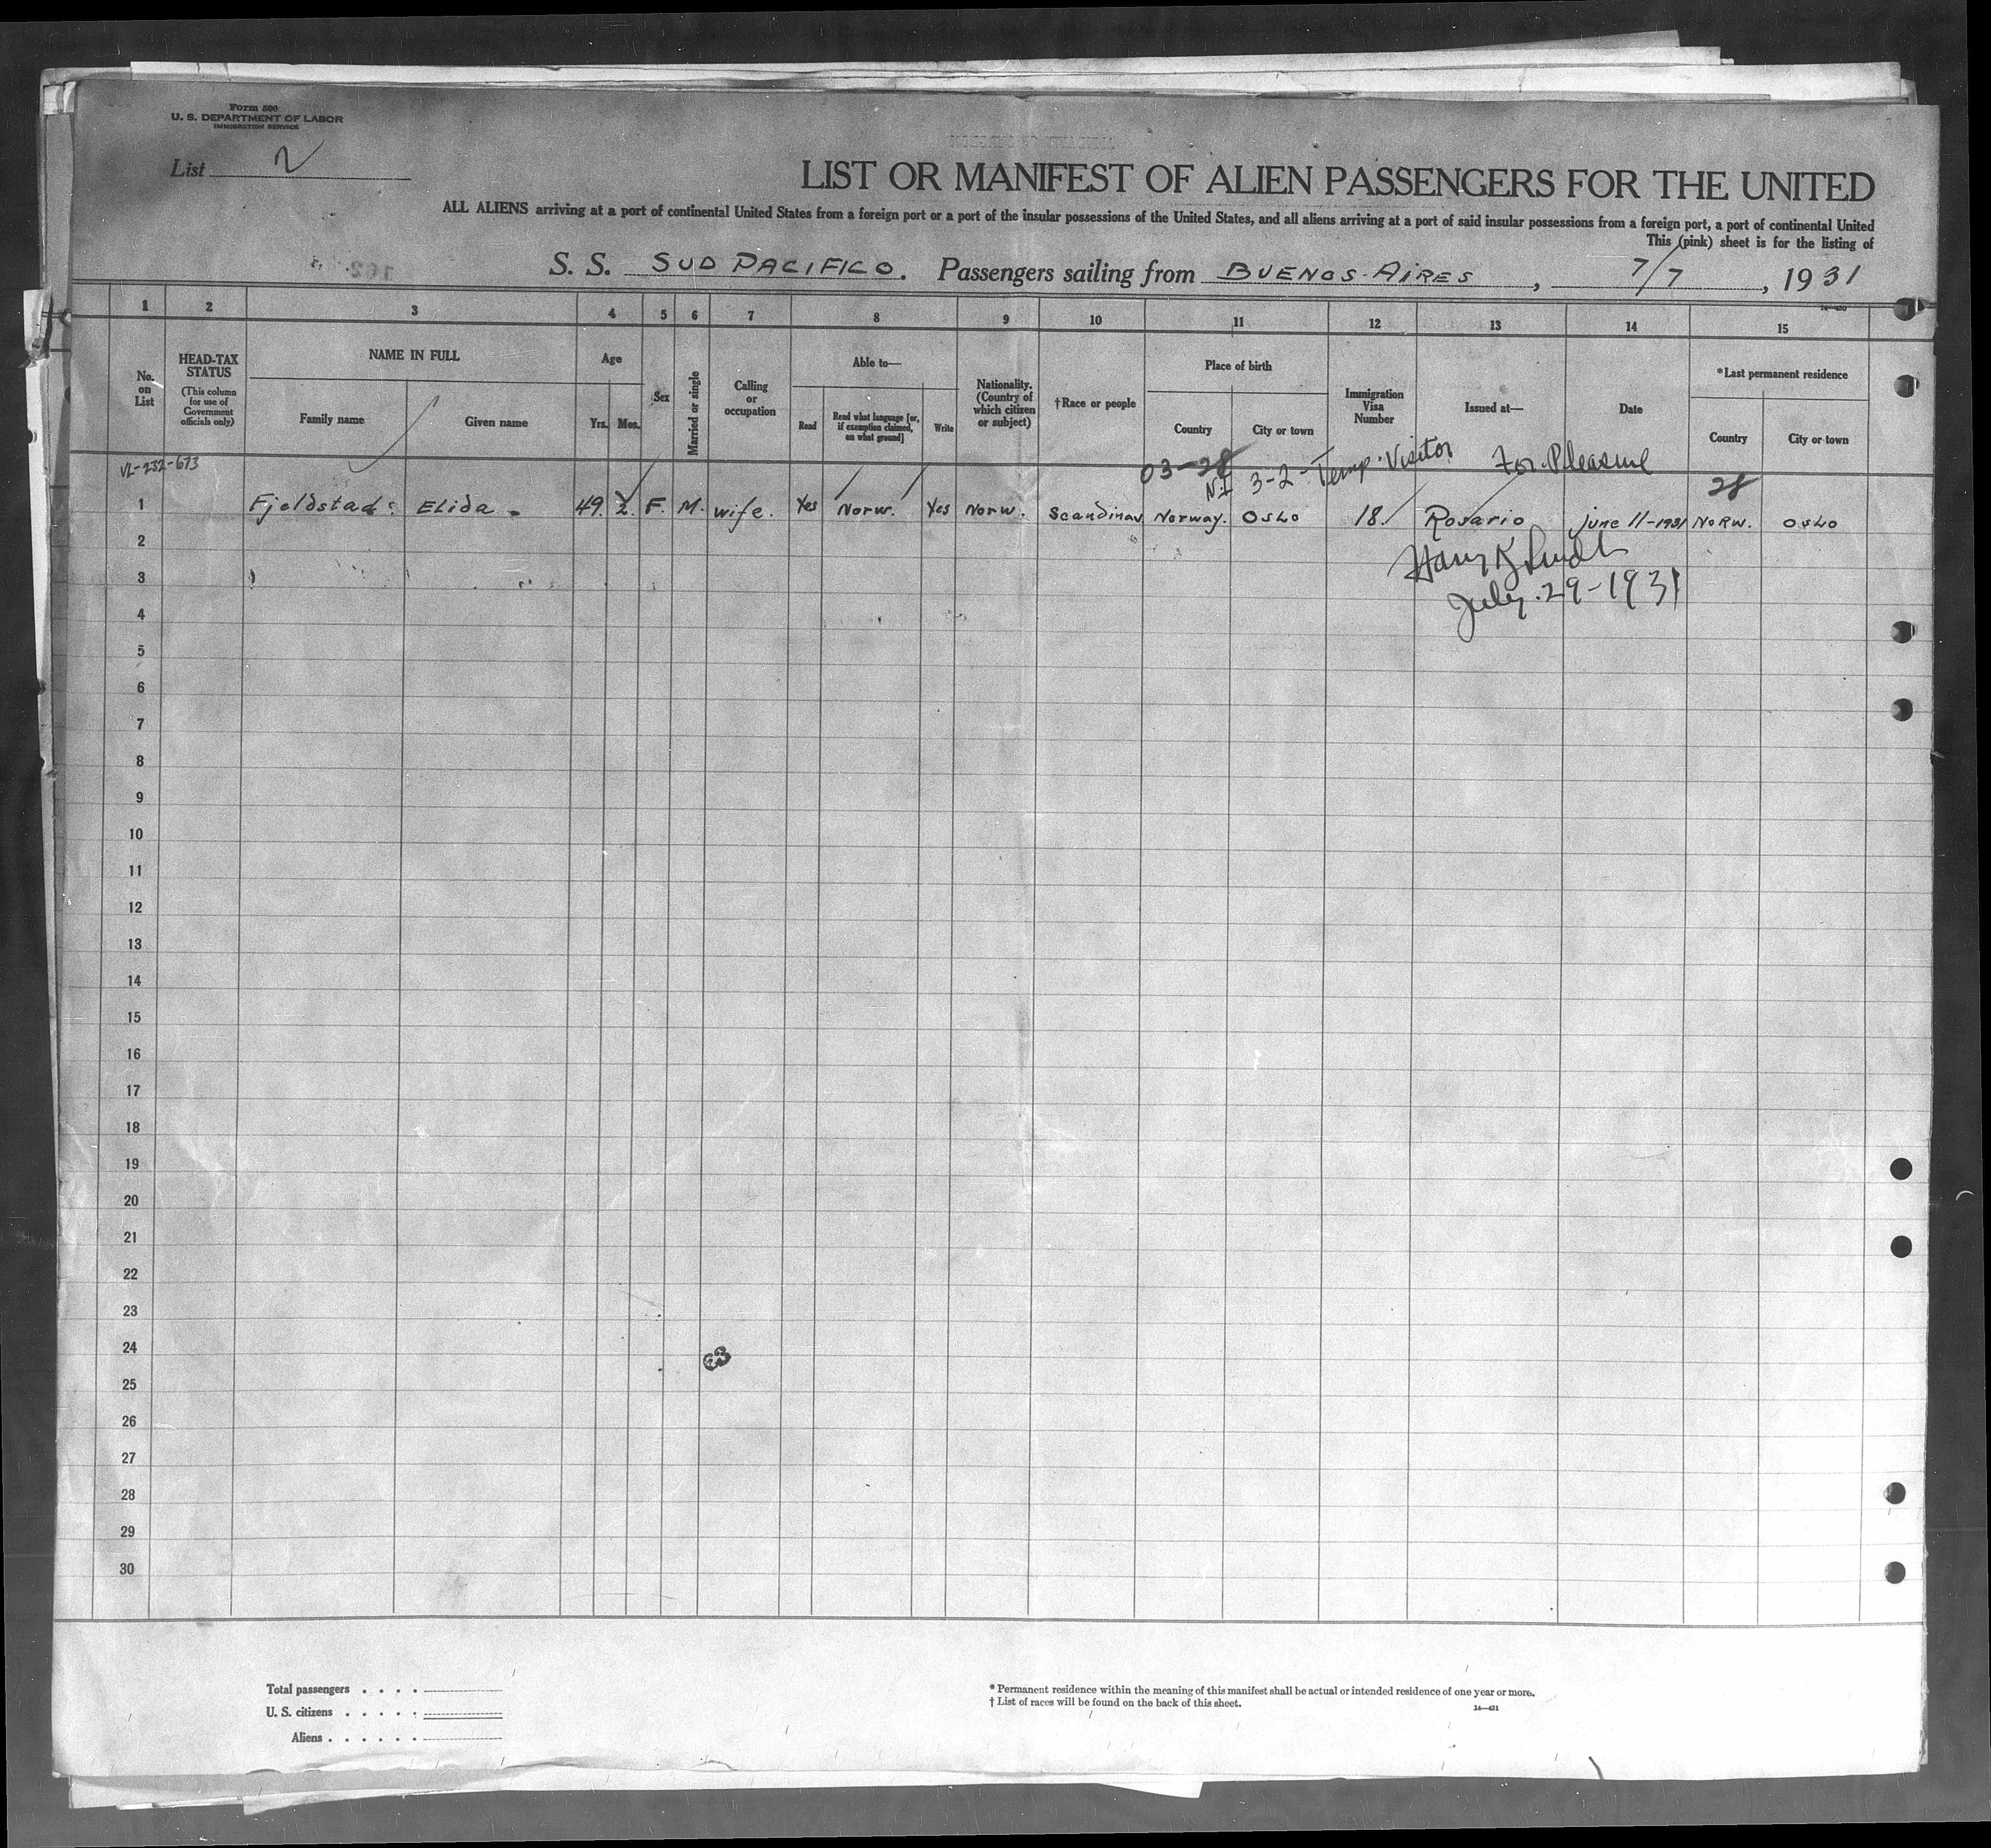 Form 500
U. S. DEPARTMENT OF LABOR
IMMIGRATION SERVICE
List 2
LIST OR MANIFEST OF ALIEN PASSENGERS FOR THE UNITED
ALL ALIENS arriving at a port of continental United States from a foreign port or a port of the insular possessions of the United States, and all aliens arriving at a port of said insular possessions from a foreign port, a port of continental United
This (pink) sheet is for the listing of
S. S. SUD PACIFICO. Passengers sailing from BUENOS-AIRES, 7/7, 1931
1 2 3 4 5 6 7 8 9 10 11 12 13 14 15
No. on List
HEAD-TAX STATUS
(This column for use of Government officials only)
NAME IN FULL
Family name
Given name
Age
Yrs. Mos.
Sex
Married or single
Calling or occupation
Able to—
Read
Read what language [or, if exemption claimed, on what ground]
Write
Nationality. (Country of which citizen or subject)
†Race or people
Place of birth
Country
City or town
Immigration Visa Number
Issued at—
Date
*Last permanent residence
Country
City or town
VL-232-673
03-28
3-2-Temp. Visitor For Pleasure
28
1 Fjeldstad Elida. 49. F. M. wife. Yes Norw. Yes Norw. Scandinav Norway. OSLO 18. Rosario june 11-1931 NORW. OSLO
2
July. 29-1931
3
4
5
6
7
8
9
10
11
12
13
14
15
16
17
18
19
20
21
22
23
24
63
25
26
27
28
29
30
Total passengers . . . .
U. S. citizens . . . . .
Aliens . . . . . .
* Permanent residence within the meaning of this manifest shall be actual or intended residence of one year or more.
† List of races will be found on the back of this sheet.
14—431